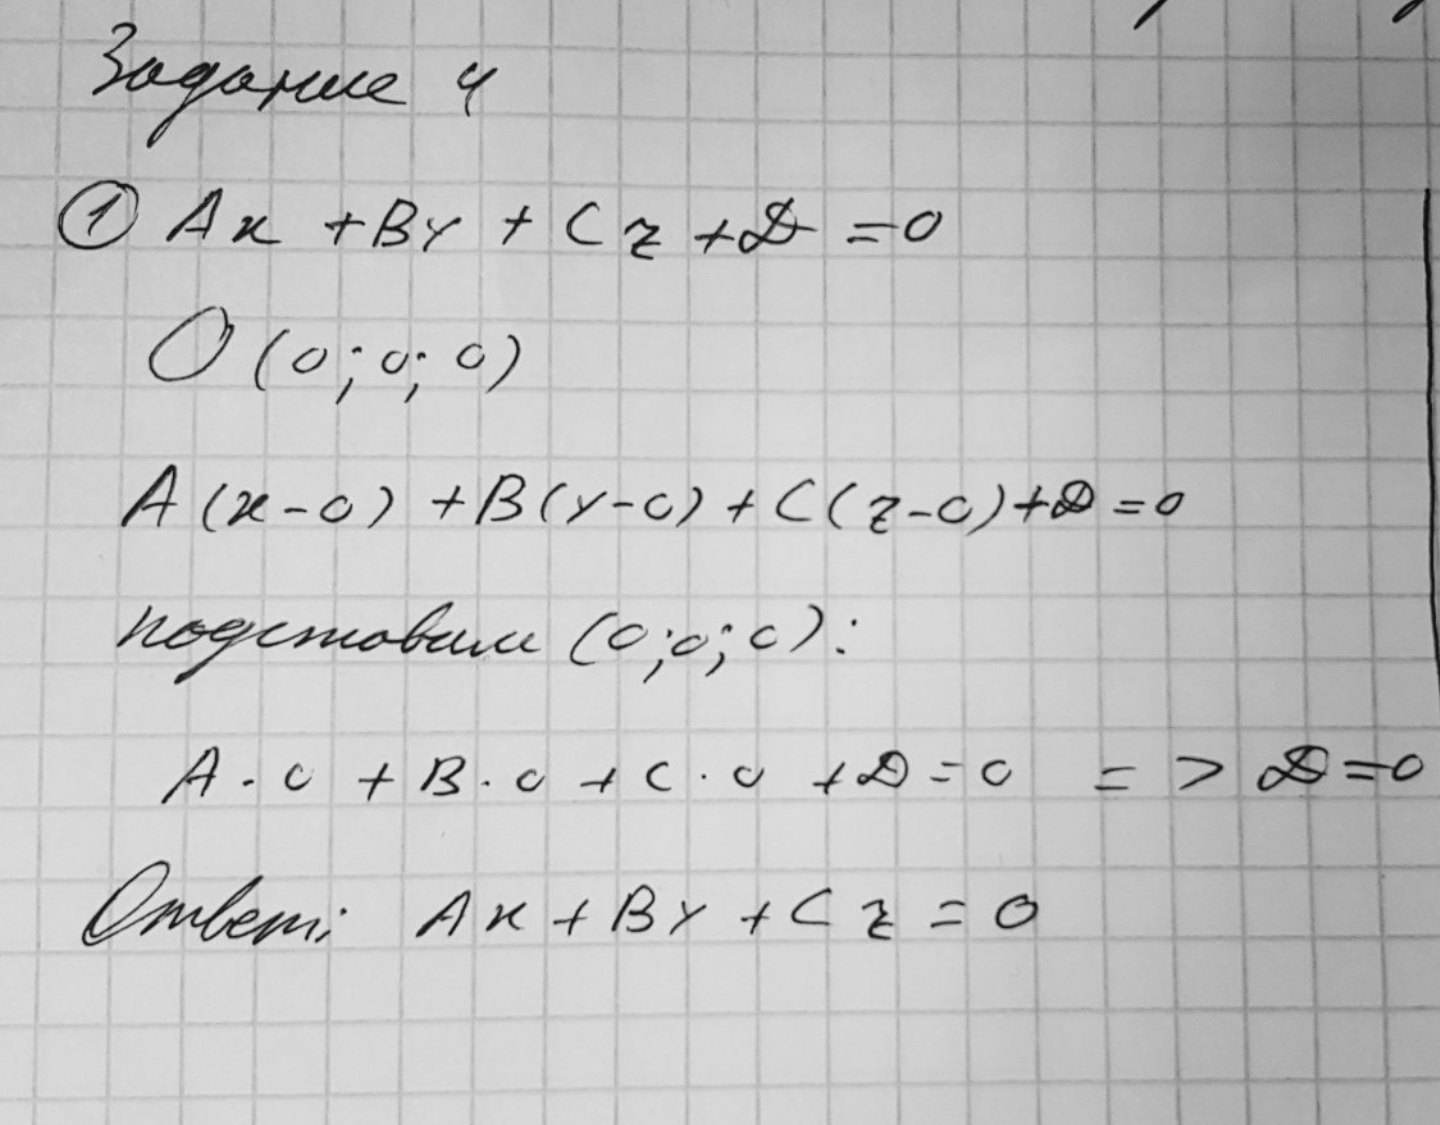 Задание 4
① Ax + By + Cz + D = 0
O (0; 0; 0)
A(x-0) + B(y-0) + C(z-0) + D = 0
подставим (0; 0; 0):
A · 0 + B · 0 + C · 0 + D = 0 => D = 0
Ответ: Ax + By + Cz = 0